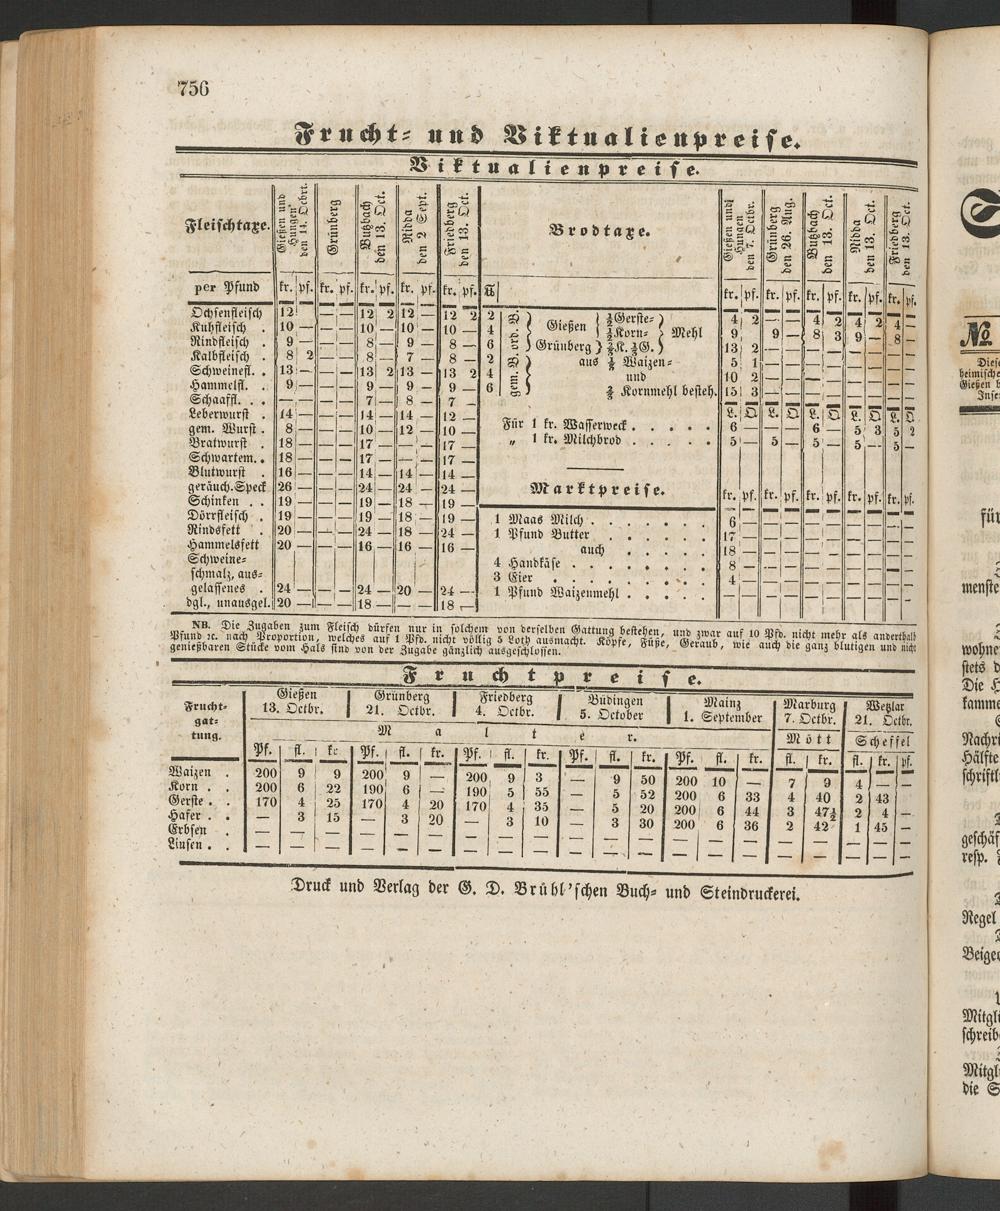 756
Frucht- und Viktualienpreise.
Viktualienpreise.
Fleischtaxe. | Gießen und Hungen den 14. Octbrt. | Grünberg | Butzbach den 13. Oct. | Nidda den 2 Sept. | Friedberg den 13. Oct.
per Pfund | kr. pf. | kr. pf. | kr. pf. | kr. pf. | kr. pf.
Ochsenfleisch | 12 — | — — | 12 2 | 12 — | 12 2
Kuhfleisch . | 10 — | — — | 10 — | 10 — | 10 —
Rindfleisch . | 9 — | — — | 8 — | 9 — | 8 —
Kalbfleisch . | 8 2 | — — | 8 — | 7 — | 8 —
Schweinefl. . | 13 — | — — | 13 2 | 13 — | 13 2
Hammelfl. . | 9 — | — — | 9 — | 9 — | 9 —
Schaaffl. . . | — — | — — | 7 — | 8 — | 7 —
Leberwurst . | 14 — | — — | 14 — | 14 — | 12 —
gem. Wurst . | 8 — | — — | 10 — | 12 — | 10 —
Bratwurst . | 18 — | — — | 17 — | — — | 17 —
Schwartem. . | 18 — | — — | 17 — | — — | 17 —
Blutwurst . | 16 — | — — | 14 — | 14 — | 14 —
geräuch. Speck | 26 — | — — | 24 — | 24 — | 24 —
Schinken . . | 19 — | — — | 19 — | 18 — | 19 —
Dörrfleisch . | 19 — | — — | 19 — | 18 — | 19 —
Rindsfett . | 20 — | — — | 24 — | 18 — | 24 —
Hammelsfett | 20 — | — — | 16 — | 16 — | 16 —
Schweine-
schmalz, aus-
gelassenes . | 24 — | — — | 24 — | 20 — | 24 —
dgl., unausgel. | 20 — | — — | 18 — | — — | 18 —
Brodtaxe. | Gießen und Hungen den 7. Octbr. | Grünberg den 26. Aug. | Butzbach den 13. Oct. | Nidda den 13. Oct. | Friedberg den 13. Oct.
℔ | kr. pf. | kr. pf. | kr. pf. | kr. pf. | kr. pf.
2 ord. B. Gießen ½ Gerste- | 4 2 | — — | 4 2 | 4 2 | 4 —
4 ½ Korn- Mehl | 9 — | 9 — | 8 3 | 9 — | 8 —
6 Grünberg ⅔ K. ⅓ G. | 13 2 | — — | — — | — — | — —
2 gem. B. aus ⅓ Waizen- | 5 1 | — — | — — | — — | — —
4 und | 10 2 | — — | — — | — — | — —
6 ⅔ Kornmehl besteh. | 15 3 | — — | — — | — — | — —
L. Q. | L. Q. | L. Q. | L. Q. | L. Q.
Für 1 kr. Wasserweck . . . . . | 6 — | — — | 6 — | 5 3 | 5 2
„ 1 kr. Milchbrod . . . . . | 5 — | 5 — | 5 — | 5 — | 5 —
Marktpreise. | kr. pf. | kr. pf. | kr. pf. | kr. pf. | kr. pf.
1 Maas Milch . . . . . . | 6 — | — — | — — | — — | — —
1 Pfund Butter . . . . . | 17 — | — — | — — | — — | — —
auch . . . . | 18 — | — — | — — | — — | — —
4 Handkäse . . . . . . | 8 — | — — | — — | — — | — —
3 Eier . . . . . . . | 4 — | — — | — — | — — | — —
1 Pfund Waizenmehl . . . . | — — | — — | — — | — — | — —
NB. Die Zugaben zum Fleisch dürfen nur in solchem von derselben Gattung bestehen, und zwar auf 10 Pfd. nicht mehr als anderthalb
Pfund ꝛc. nach Proportion, welches auf 1 Pfd. nicht völlig 5 Loth ausmacht. Köpfe, Füße, Geraub, wie auch die ganz blutigen und nicht
genießbaren Stücke vom Hals sind von der Zugabe gänzlich ausgeschlossen.
Fruchtpreise.
Frucht-gat-tung. | Gießen 13. Octbr. | Grünberg 21. Octbr. | Friedberg 4. Octbr. | Büdingen 5. October | Mainz 1. September | Marburg 7. Octbr. | Wetzlar 21. Octbr.
Malter. | Mött | Scheffel
Pf. fl. kr | Pf. fl. kr. | Pf. fl. kr. | Pf. fl. kr. | Pf. fl. kr. | fl. kr. | fl. kr. pf.
Waizen . | 200 9 9 | 200 9 — | 200 9 3 | — 9 50 | 200 10 — | 7 9 | 4 — —
Korn . . | 200 6 22 | 190 6 — | 190 5 55 | — 5 52 | 200 6 33 | 4 40 | 2 43 —
Gerste . . | 170 4 25 | 170 4 20 | 170 4 35 | — 5 20 | 200 6 44 | 3 47½ | 2 4 —
Hafer . . | — 3 15 | — 3 20 | — 3 10 | — 3 30 | 200 6 36 | 2 42 | 1 45 —
Erbsen . | — — — | — — — | — — — | — — — | — — — | — — | — — —
Linsen . . | — — — | — — — | — — — | — — — | — — — | — — | — — —
Druck und Verlag der G. D. Brühl'schen Buch- und Steindruckerei.
№
Diese
heimische
Gießen b
Inse
für
menste
wohne
stets d
Die H
kamme
Nachri
Hälfte
schriftl
geschäf
resp.
Regel
Beige
Mitgli
schreib
Mitgl
die S